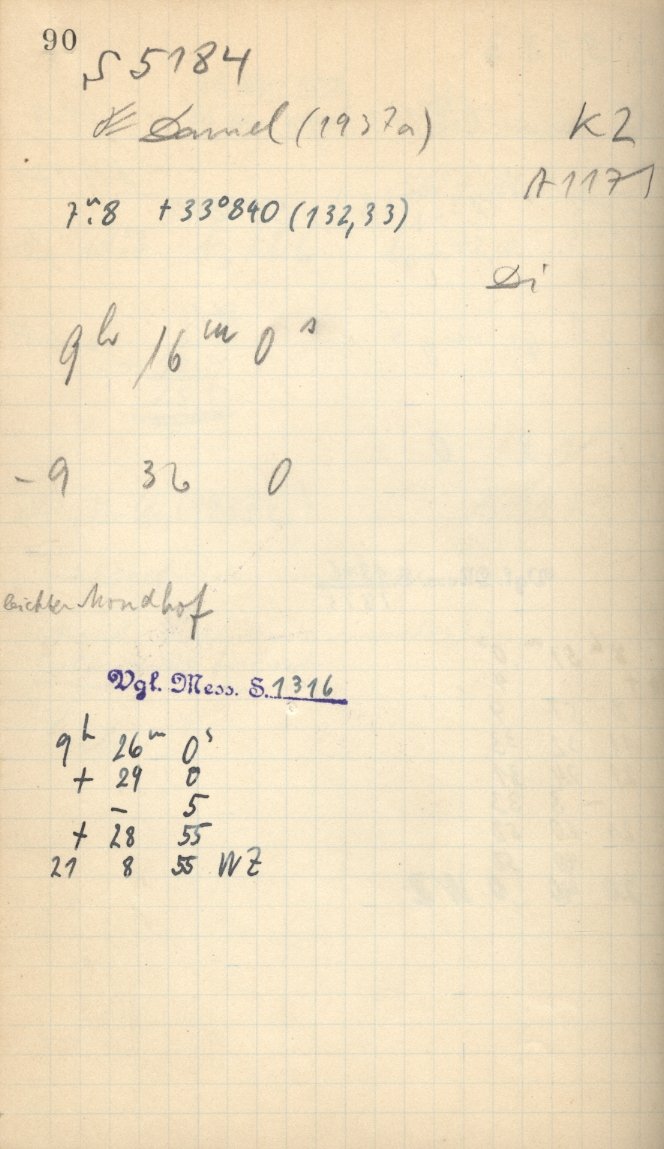 90
S 5184
Daniel (1937a)
K2
A 1171
7ᵐ.8 +33°840 (132,33)
Di
9ʰ 16ᵐ 0ˢ
- 9 36 0
leichter Mondhof
Vgl. Mess. S. 1316
9ʰ 26ᵐ 0ˢ
+ 29 0
- 5
+ 28 55
21 8 55 WZ